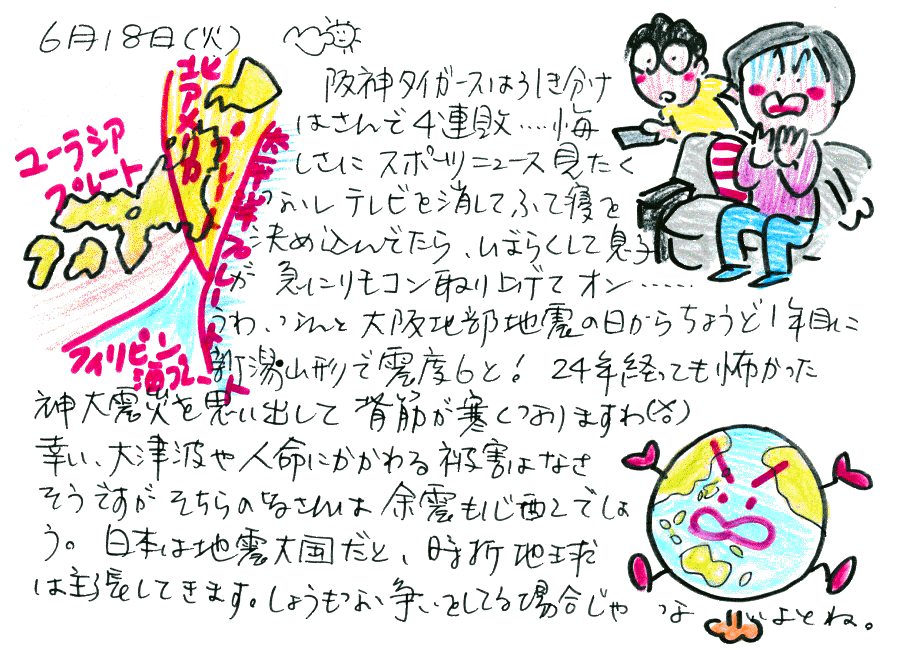 6月18日(火)
阪神タイガースは引き分け
はさんで4連敗……悔
しさに スポーツニュース見たく
ないし テレビを消してふて寝を
決め込んでたら、しばらくして息子
が 急にリモコン取り上げて オン……
うわ、なんと 大阪北部地震の日からちょうど1年目に
新潟山形で震度6と! 24年経っても怖かった
神大震災を思い出して 背筋が寒くなりますわ
幸い、大津波や人命にかかわる被害はなさ
そうですが そちらのみなさんは 余震も心配でしょ
う。 日本は地震大国だと、時折 地球
は主張してきます。しょうもない争いをしてる場合じゃ な よとね。
北アメリカプレート
ユーラシア
プレート
太平洋プレート
フィリピン
海プレート